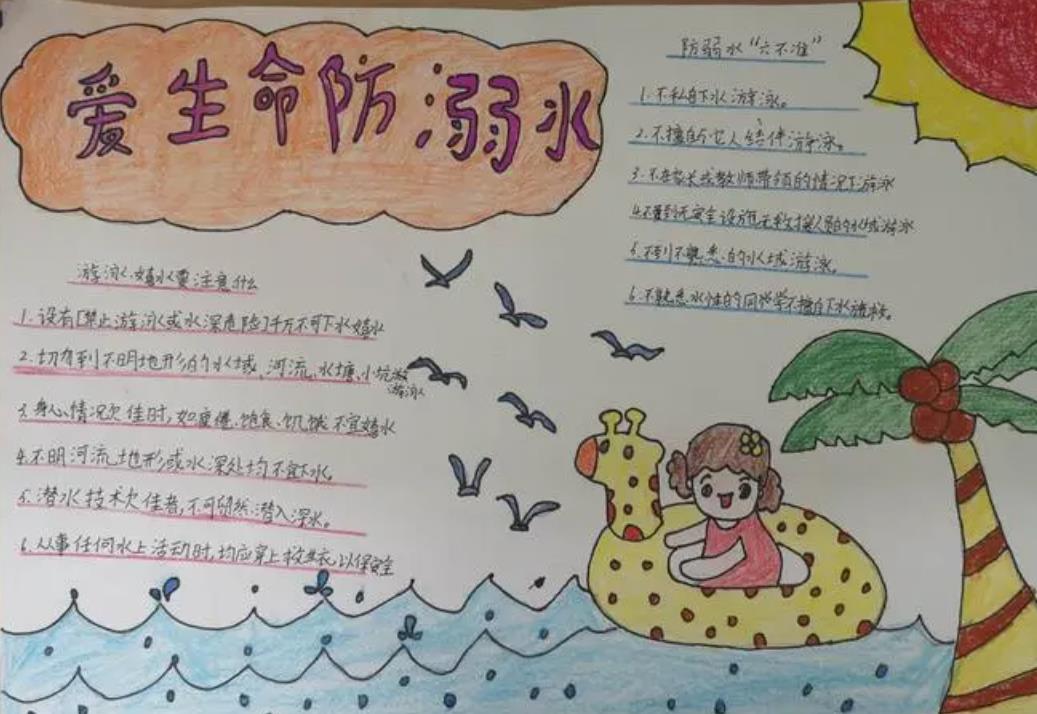 爱生命防溺水
游泳、嬉水要注意什么
1.设有[禁止游泳或水深危险]千万不可下水嬉水
2.切勿到不明地形的水域、河流、水塘、小坑游
游泳
3.身心情况欠佳时,如疲倦、饱食、饥饿不宜嬉水
4.不明河流地形或水深处均不宜下水。
5.潜水技术欠佳者,不可贸然潜入深水。
6.从事任何水上活动时,均应穿上救生衣,以保安全
防溺水“六不准”
1.不私自下水游泳。
2.不擅自与他人结伴游泳。
3.不在家长或教师带领的情况下游泳
4.不到无安全设施无救援人员的水域游泳
5.不到不熟悉的水域游泳。
6.不熟悉水性的同学不擅自下水施救。